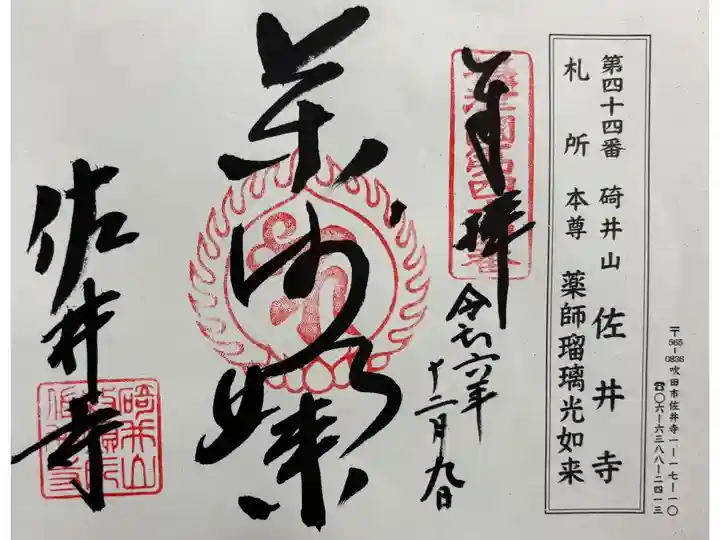 第四十四番 碕井山 佐井寺
札所 本尊 薬師瑠璃光如来
〒565-0836 吹田市佐井寺一-一七-一〇
☎〇六-六三八八-二四一三
奉拝
令和六年
十二月九日
薬師如来
佐井寺